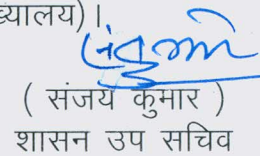 ख्यालय)।
( संजय कुमार )
शासन उप सचिव